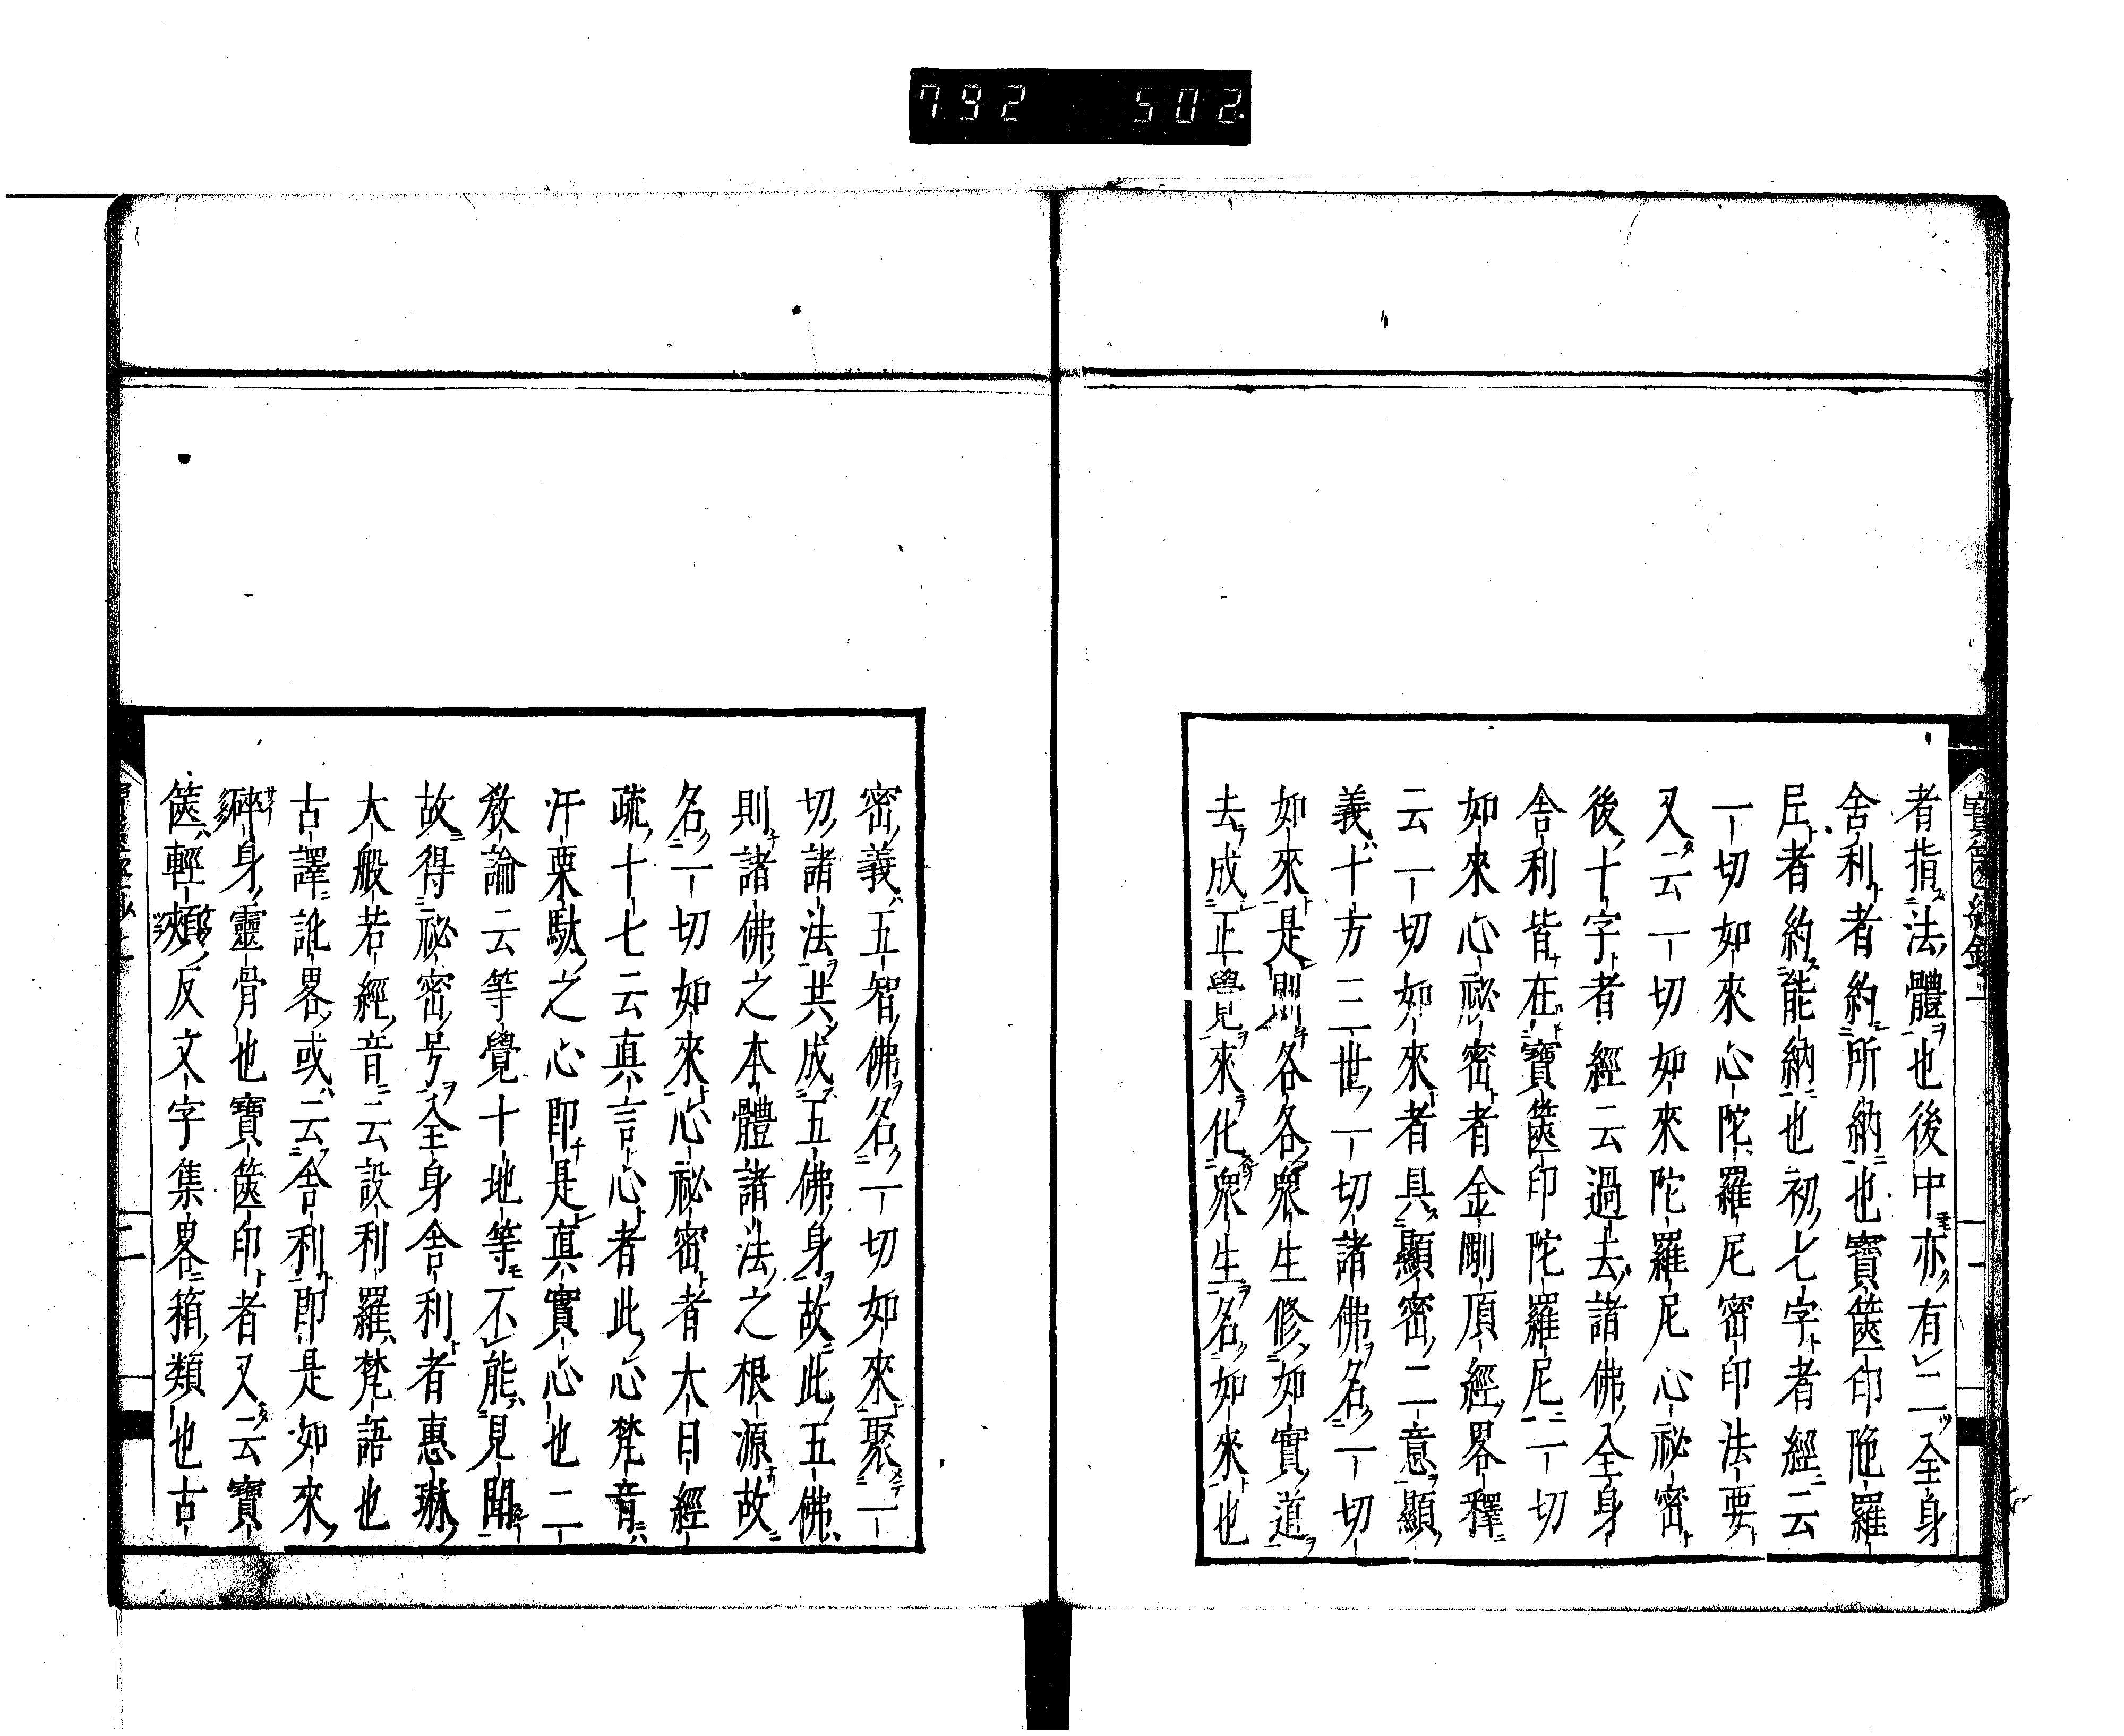 792 502
寶篋經鈔一
者指法體也後中亦有二全身
舍利者約所納也寶篋印陁羅
尼者約能納也初七字者經云
一切如來心陀羅尼密印法要
又云一切如來陀羅尼心祕密
後十字者經云過去諸佛全身
舍利皆在寶篋印陀羅尼一切
如來心祕密者金剛頂經畧釋
云一切如來者具顯密二意顯
義十方三世一切諸佛名一切
如來是則各各衆生修如實道
去成正覺見來化衆生名如來也
密義五智佛名一切如來聚一
切諸法共成五佛身故此五佛
則諸佛之本體諸法之根源故
名一切如來心祕密者大日經
疏十七云真言心者此心梵音
汗栗駄之心即是真實心也二
教論云等覺十地等不能見聞
故得祕密号全身舍利者惠琳
大般若經音云設利羅梵語也
古譯訛畧或云舍利即是如來
碎身靈骨也寶篋印者又云寶
篋輕頰反文字集畧箱類也古
二